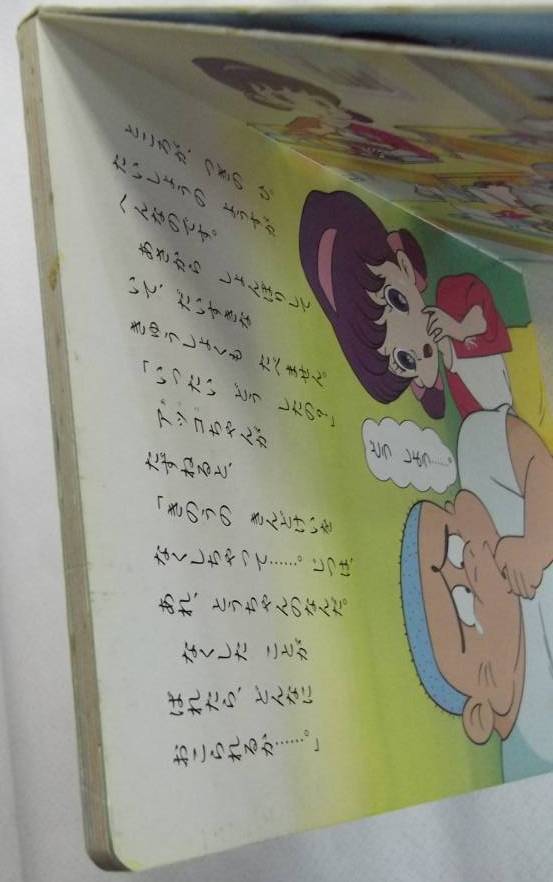 ところが、つぎの ひ。
たいしょうの ようすが
へんなのです。
あさから しょんぼりして
いて、だいすきな
きゅうしょくも たべません。
「いったい どう したの?」
アッコちゃんが
たずねると、
「きのうの きんとけいを
なくしちゃって……。じつは、
あれ、とうちゃんのなんだ。
なくした ことが
ばれたら、どんなに
おこられるか……。」
どう しよう……。